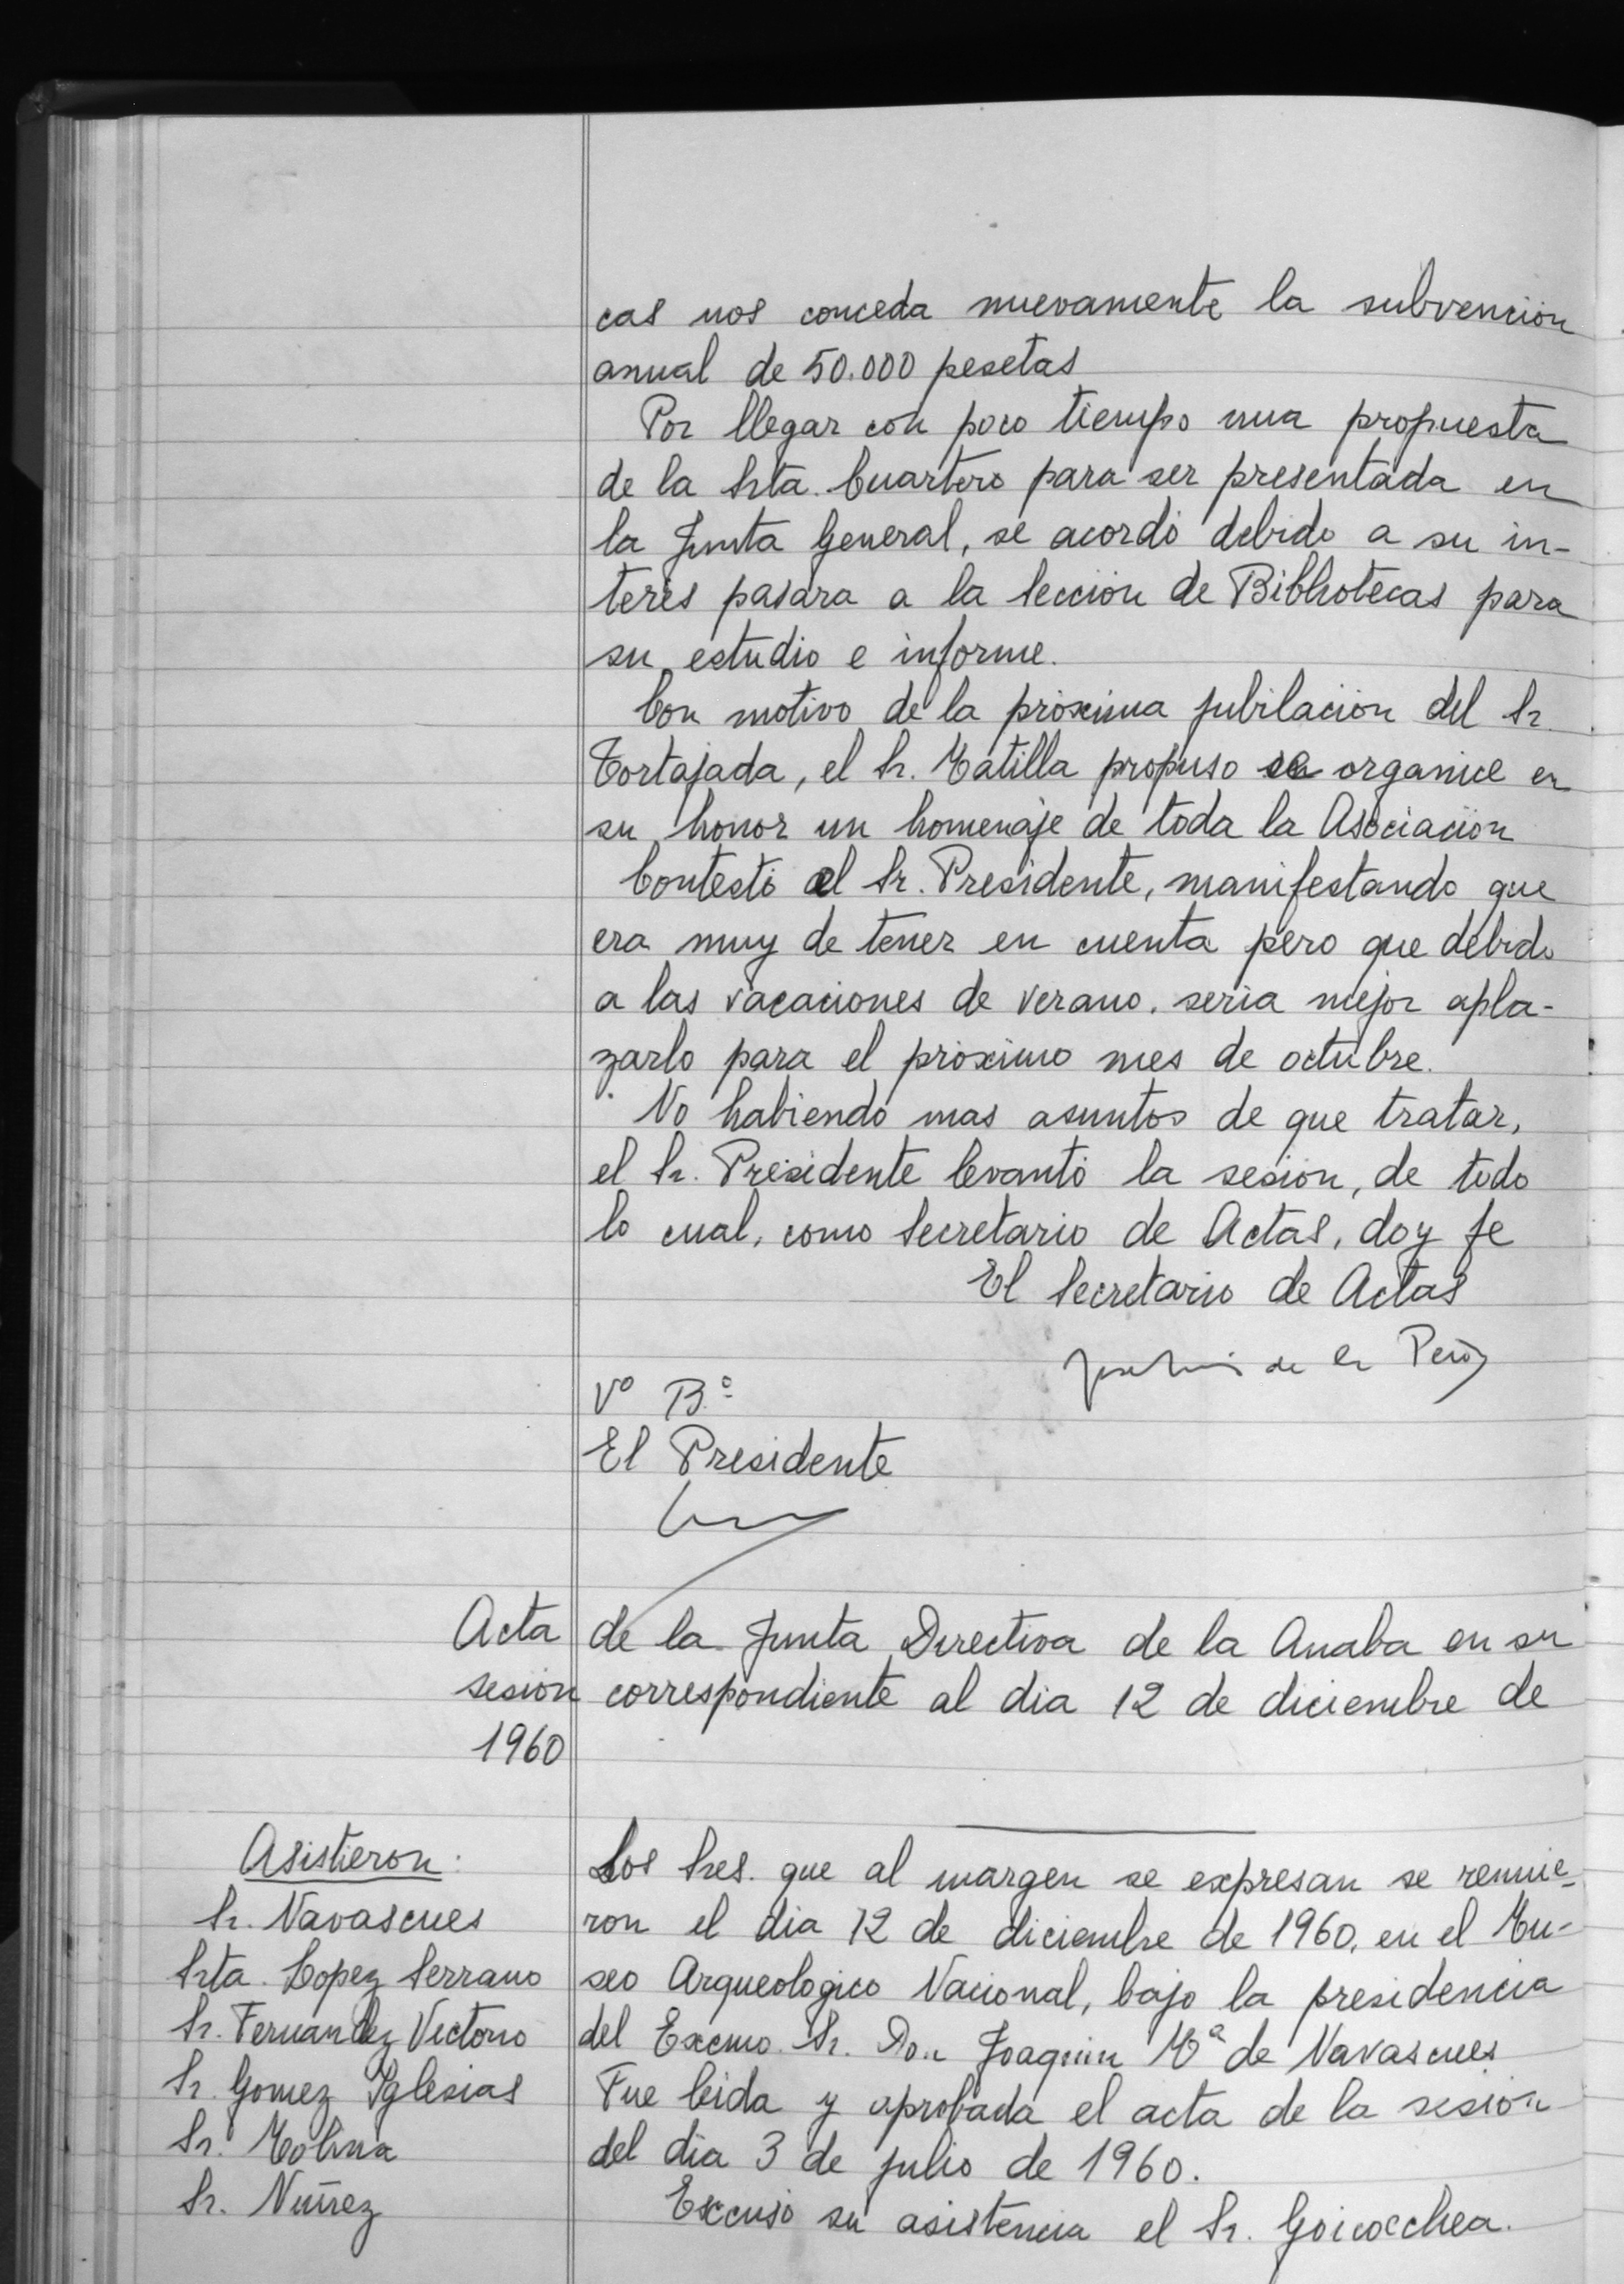 cas nos conceda nuevamente la subvención
anual de 50.000 pesetas
Por llegar con poco tiempo una propuesta
de la Srta. Cuartero para ser presentada en
la Junta General, se acordó debido a su in-
terés pasara a la Sección de Bibliotecas para
su estudio e informe.
Con motivo de la próxima jubilación del Sr.
Tortajada, el Sr. Matilla propuso se organice en
su honor un homenaje de toda la Asociación
Contestó el Sr. Presidente, manifestando que
era muy de tener en cuenta pero que debido
a las vacaciones de verano, sería mejor apla-
zarlo para el próximo mes de octubre.
No habiendo mas asuntos de que tratar,
el Sr. Presidente levantó la sesión, de todo
lo cual, como Secretario de Actas, doy fe
El Secretario de Actas
de la Peña
Vº B.º
El Presidente
Acta de la Junta Directiva de la Anaba en su
sesión correspondiente al dia 12 de diciembre de
1960
Asistieron:
Sr. Navascues
Srta. Lopez Serrano
Sr. Fernandez Victorio
Sr. Gomez Iglesias
Sr. Molina
Sr. Nuñez
Los Sres. que al margen se expresan se reunie-
ron el dia 12 de diciembre de 1960, en el Mu-
seo Arqueologico Nacional, bajo la presidencia
del Excmo. Sr. Don Joaquin Mª de Navascues
Fue leida y aprobada el acta de la sesión
del dia 3 de julio de 1960.
Excusó su asistencia el Sr. Goicoechea.